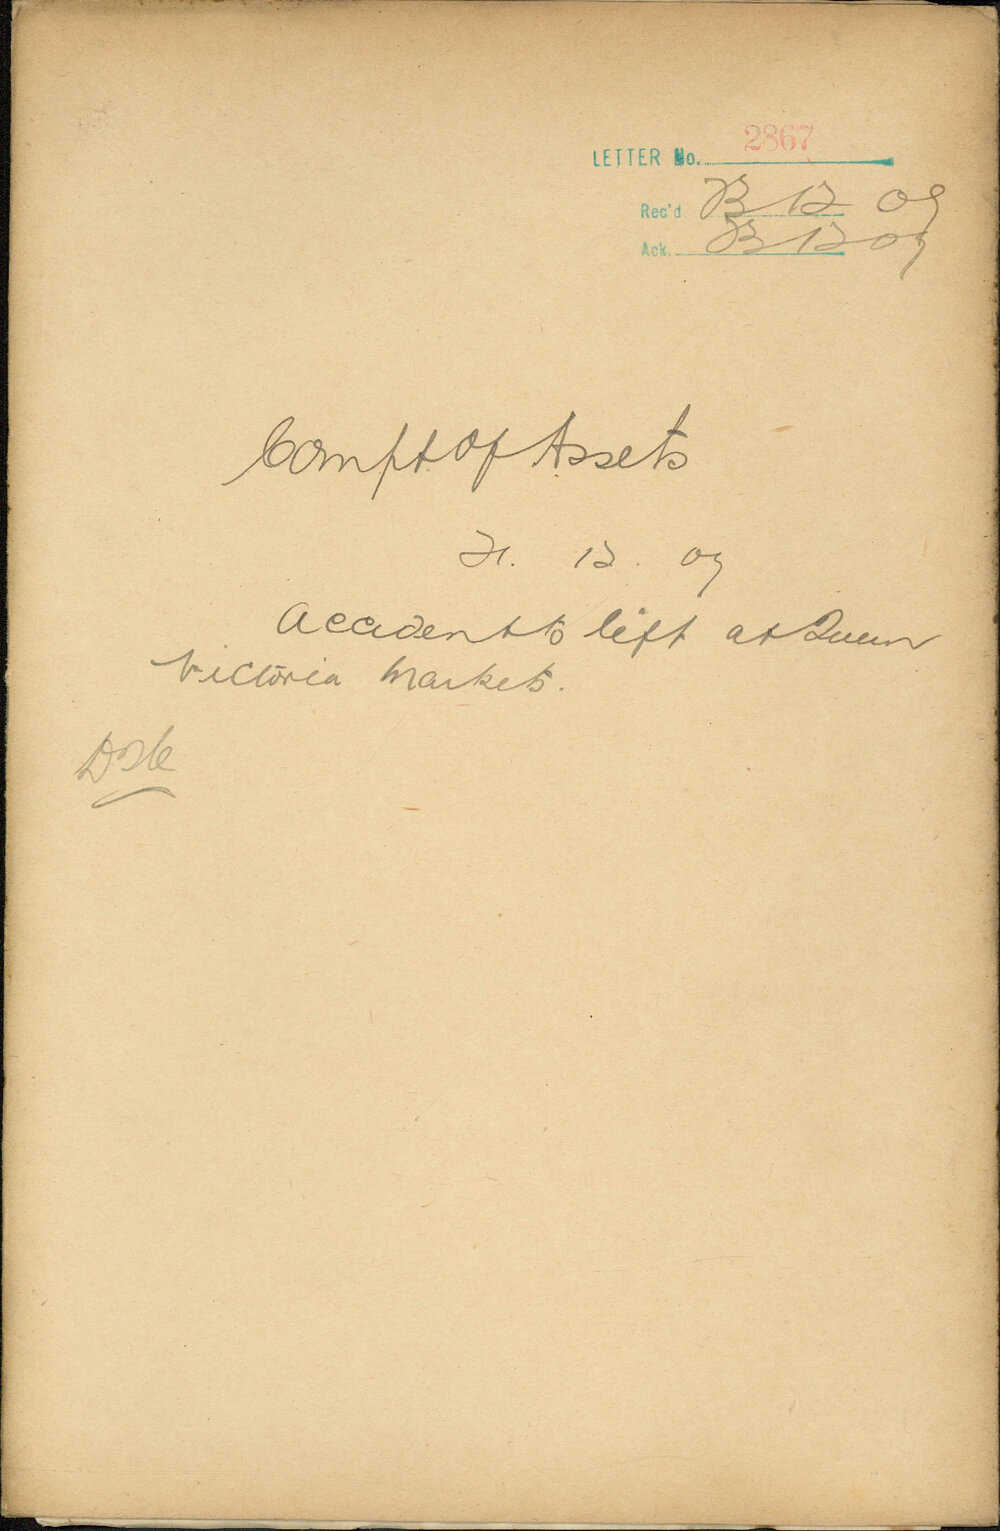 LETTER No. 2867
Rec'd 23 12 09
Ack. 23 12 09
Compt. of Assets
21. 12. 09
Accident to lift at Queen
Victoria Markets.